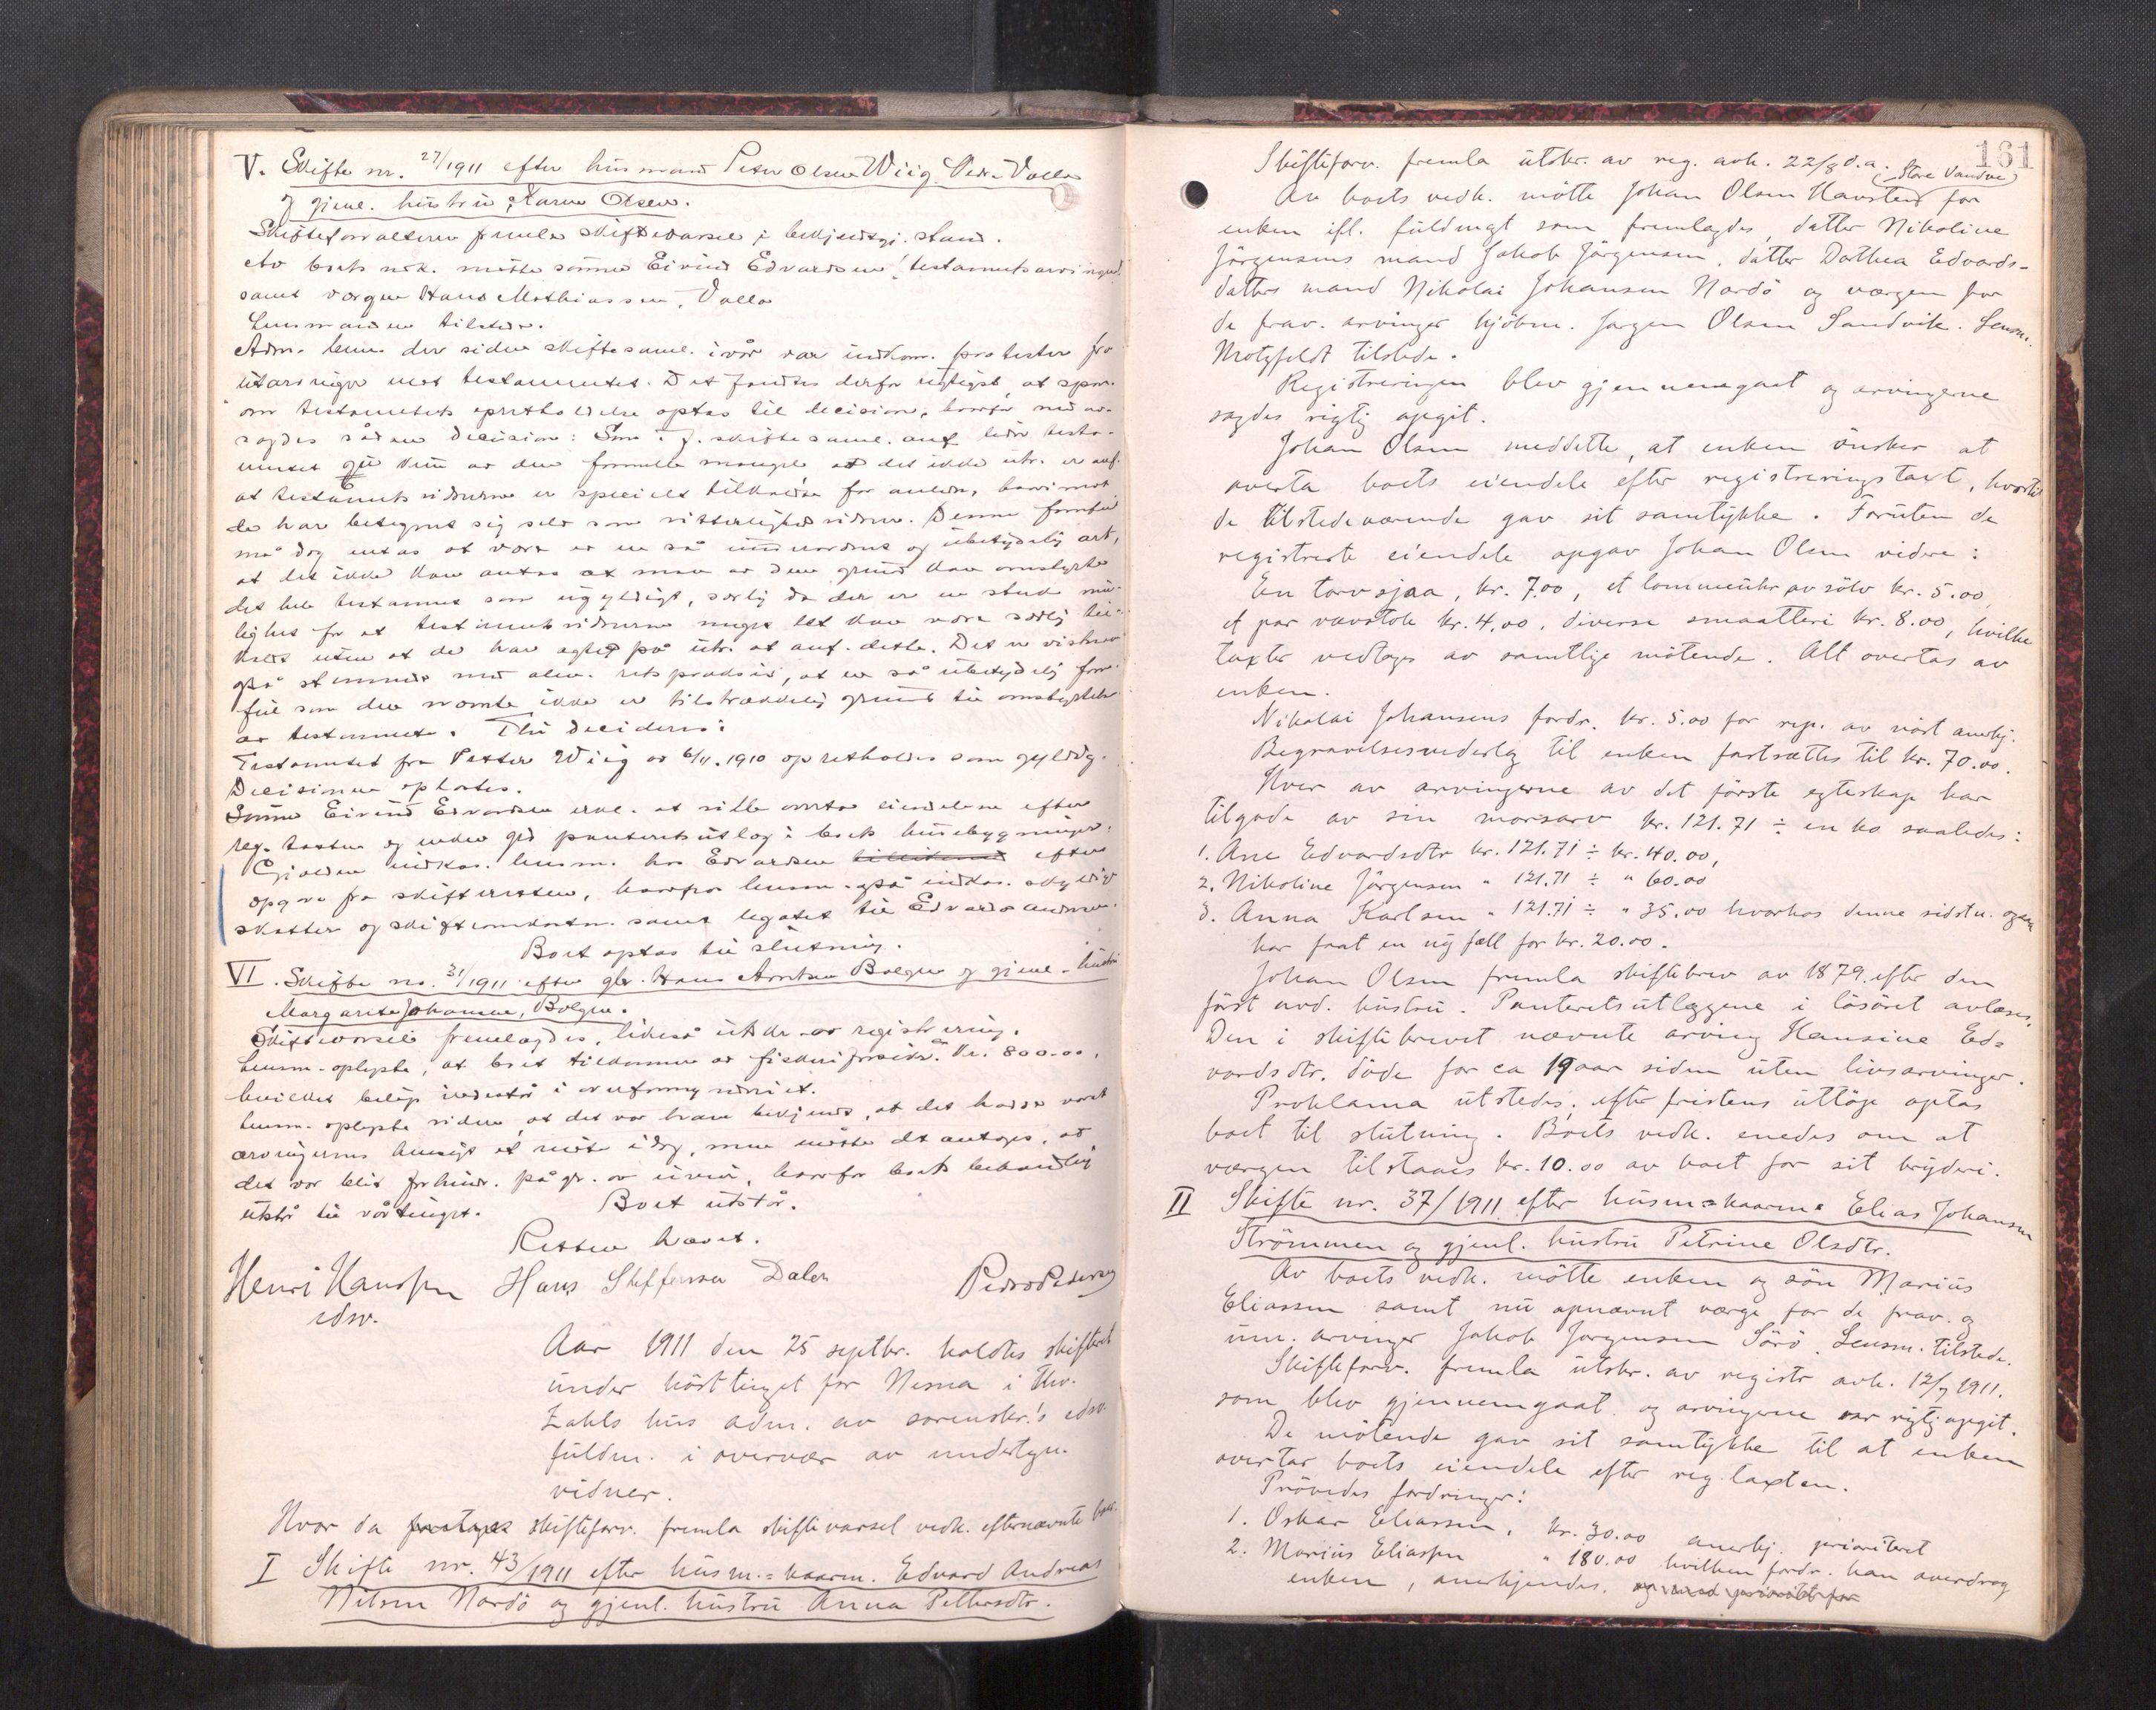 V. Skifte nr. 27/1911 efter husmand Peter Olsen Wiig Vedr. Valla
og gjenl. hustru, Karen Olsen.
Skifteforvalteren fremla skiftevarsel i bekjendtgj. stand.
Av boets vedk. mötte sönnen Eivind Edvardsen (testamentsarvingen)
samt værgen Hans Mathiassen, Valla
Lensmanden tilstede.
Adm. bem. der siden skiftesaml. i vår var indkom. protester fra
utarvinger mot testamentet. Det fandtes derfor rigtigst, at spm.
om testamentets opretholdelse optas til decision, hvorfor ned av-
sagdes sådan decision: Som i f. skiftesaml. anf. lider testa-
mentet av den formelle mangel at det ikke utr. er anf.
at testamentsvidnerne er specielt tilkaldte for anledn., hvorimot
de har betegnet sig selv som vitterlighedsvidner. Denne formfeil
må dog antas at være av en så underordnet og ubetydelig art,
at det ikke kan antas at man av den grund kan omstyrte
det hele testament som ugyldigt, særlig da der er en stor mu-
lighet for at testamentsvidnerne meget let kan være særlig til-
kaldt uten at de har agtet på utr. at anf. dette. Det er vistnok
også stemmende med alm. retspraksis, at en så ubetydelig form-
feil som den nævnte ikke er tilstrækkelig grund til omstyrtelse
av testamentet. Thi decideres:
Testamentet fra Petter Wiig av 6/11. 1910 opretholdes som gyldig.
Decisionen oplæstes.
Sönnen Eivind Edvardsen erkl. at ville overta eiendelene efter
reg. taxten og under ged panteretsutlæg i boets husebygninger.
Gjælden indkas. lensm. hos Edvardsen efter
opgave fra skifteretten, hvorfra lensm. også indkas. skyldige
skatter og skifteomkostn. samt legatet til Edvards andre.
Boet optas til slutning.
VI. Skifte nr. 31/1911 efter gbr. Hans Arntsen Bolgen og gjenl. hustru
Margarete Johanna, Bolgen.
Skiftevarsel fremlagdes, likeså utskr. av registrering.
Lensm. oplyste, at boet tilkommer av fiskeriforsikr. kr. 800.00,
hvilket belöp indestår i overformynderiet.
Lensm. oplyste videre, at det var ham bekjendt, at det hadde været
arvingernes hensigt at möte idag, men måtte det antages, at
det var blit forhindr. på gr. av uveir, hvorfor boets behandling
utstår til vårtinget. Boet utstår.
Retten hævet.
Henri Hanssen Hans Steffensen Dalen Peder Pedersen
edsv.
Aar 1911 den 25 septbr. holdtes skifteret
under hösttinget for Nesna i Thv.
Zahls hus adm. av sorenskr.'s edsv.
fuldm. i overvær av undertegn.
vidner.
Hvor da skifteforv. fremla skiftevarsel vedk. efternævnte boer.
I Skifte nr. 43/1911 efter husm.=kaarm. Edvard Andreas
Nilsen Nordö og gjenl. hustru Anna Pettersdtr.
161
Skifteforv. fremla utskr. av reg. avh. 22/8 d.a.
(Store Vandve)
Av boets vedk. mötte Johan Olsen Havsten for
enken ifl. fuldmagt som fremlagdes, datter Nikoline
Jörgensens mand Jakob Jörgensen, datter Dorthea Edvards-
datters mand Nikolai Johansen Nordö og værgen for
de frav. arvinger kjöbm. Jörgen Olsen Sandvik. Lensm.
Motzfeldt tilstede.
Registreringen blev gjennemgaat og arvingerne
sagdes rigtig opgit.
Johan Olsen meddelte, at enken önsker at
overta boets eiendele efter registreringstaxt, hvortil
de tilstedeværende gav sit samtykke. Foruten de
registrerte eiendele opgav Johan Olsen videre:
En torvsjaa, kr. 7.00, et lommeuhr av sölv kr. 5.00
et par vævstole kr. 4,00, diverse smaatteri kr. 8.00, hvilke
taxter vedtoges av samtlige mötende. Alt overtas av
enken.
Nikolai Johansens fordr. kr. 5.00 for rep. av nöst anerkj.
Begravelsesvederlag til enken fastsættes til kr. 70.00.
Hver av arvingerne av det förste egteskap har
tilgode av sin morsarv kr. 121.71 ÷ en ko saaledes:
1. Ane Edvardsdtr kr. 121.71 ÷ kr. 40.00,
2. Nikoline Jörgensen " 121.71 ÷ " 60.00
3. Anna Karlsen " 121.71 ÷ " 35.00 hvorhos denne sidstn. ogsaa
har faat en ny fæll for kr. 20.00.
Johan Olsen fremla skiftebrev av 1879 efter den
först avd. hustru. Panteretsutlæggene i lösöret avlæses.
Den i skiftebrevet nævnte arving Hansine Ed=
vardsdtr. döde for ca 19 aar siden uten livsarvinger.
Proklama utstedes, efter fristens utlöp optas
boet til slutning. Boets vedk. enedes om at
værgen tilstaaes kr. 10.00 av boet for sit bryderi.
II Skifte nr. 37/1911 efter husm=kaarm. Elias Johansen
Strömmen og gjenl. hustru Petrine Olsdtr.
Av boets vedk. mötte enken og sön Marius
Eliassen samt nu opnævnt værge for de frav. og
um. arvinger Jakob Jörgensen Sörö. Lensm. tilstede.
Skifteforv. fremla utskr. av registr avh. 12/7 1911.
som blev gjennemgaat og arvingerne var rigtig opgit.
De mötende gav sit samtykke til at enken
overtar boets eiendele efter reg. taxten.
Prövedes fordringer:
1. Oskar Eliassen, kr. 30.00 anerkj. prioriteret
2. Marius Eliassen " 180.00 hvilken fordr. han overdrog
enken, anerkjendes. og med prioritet for